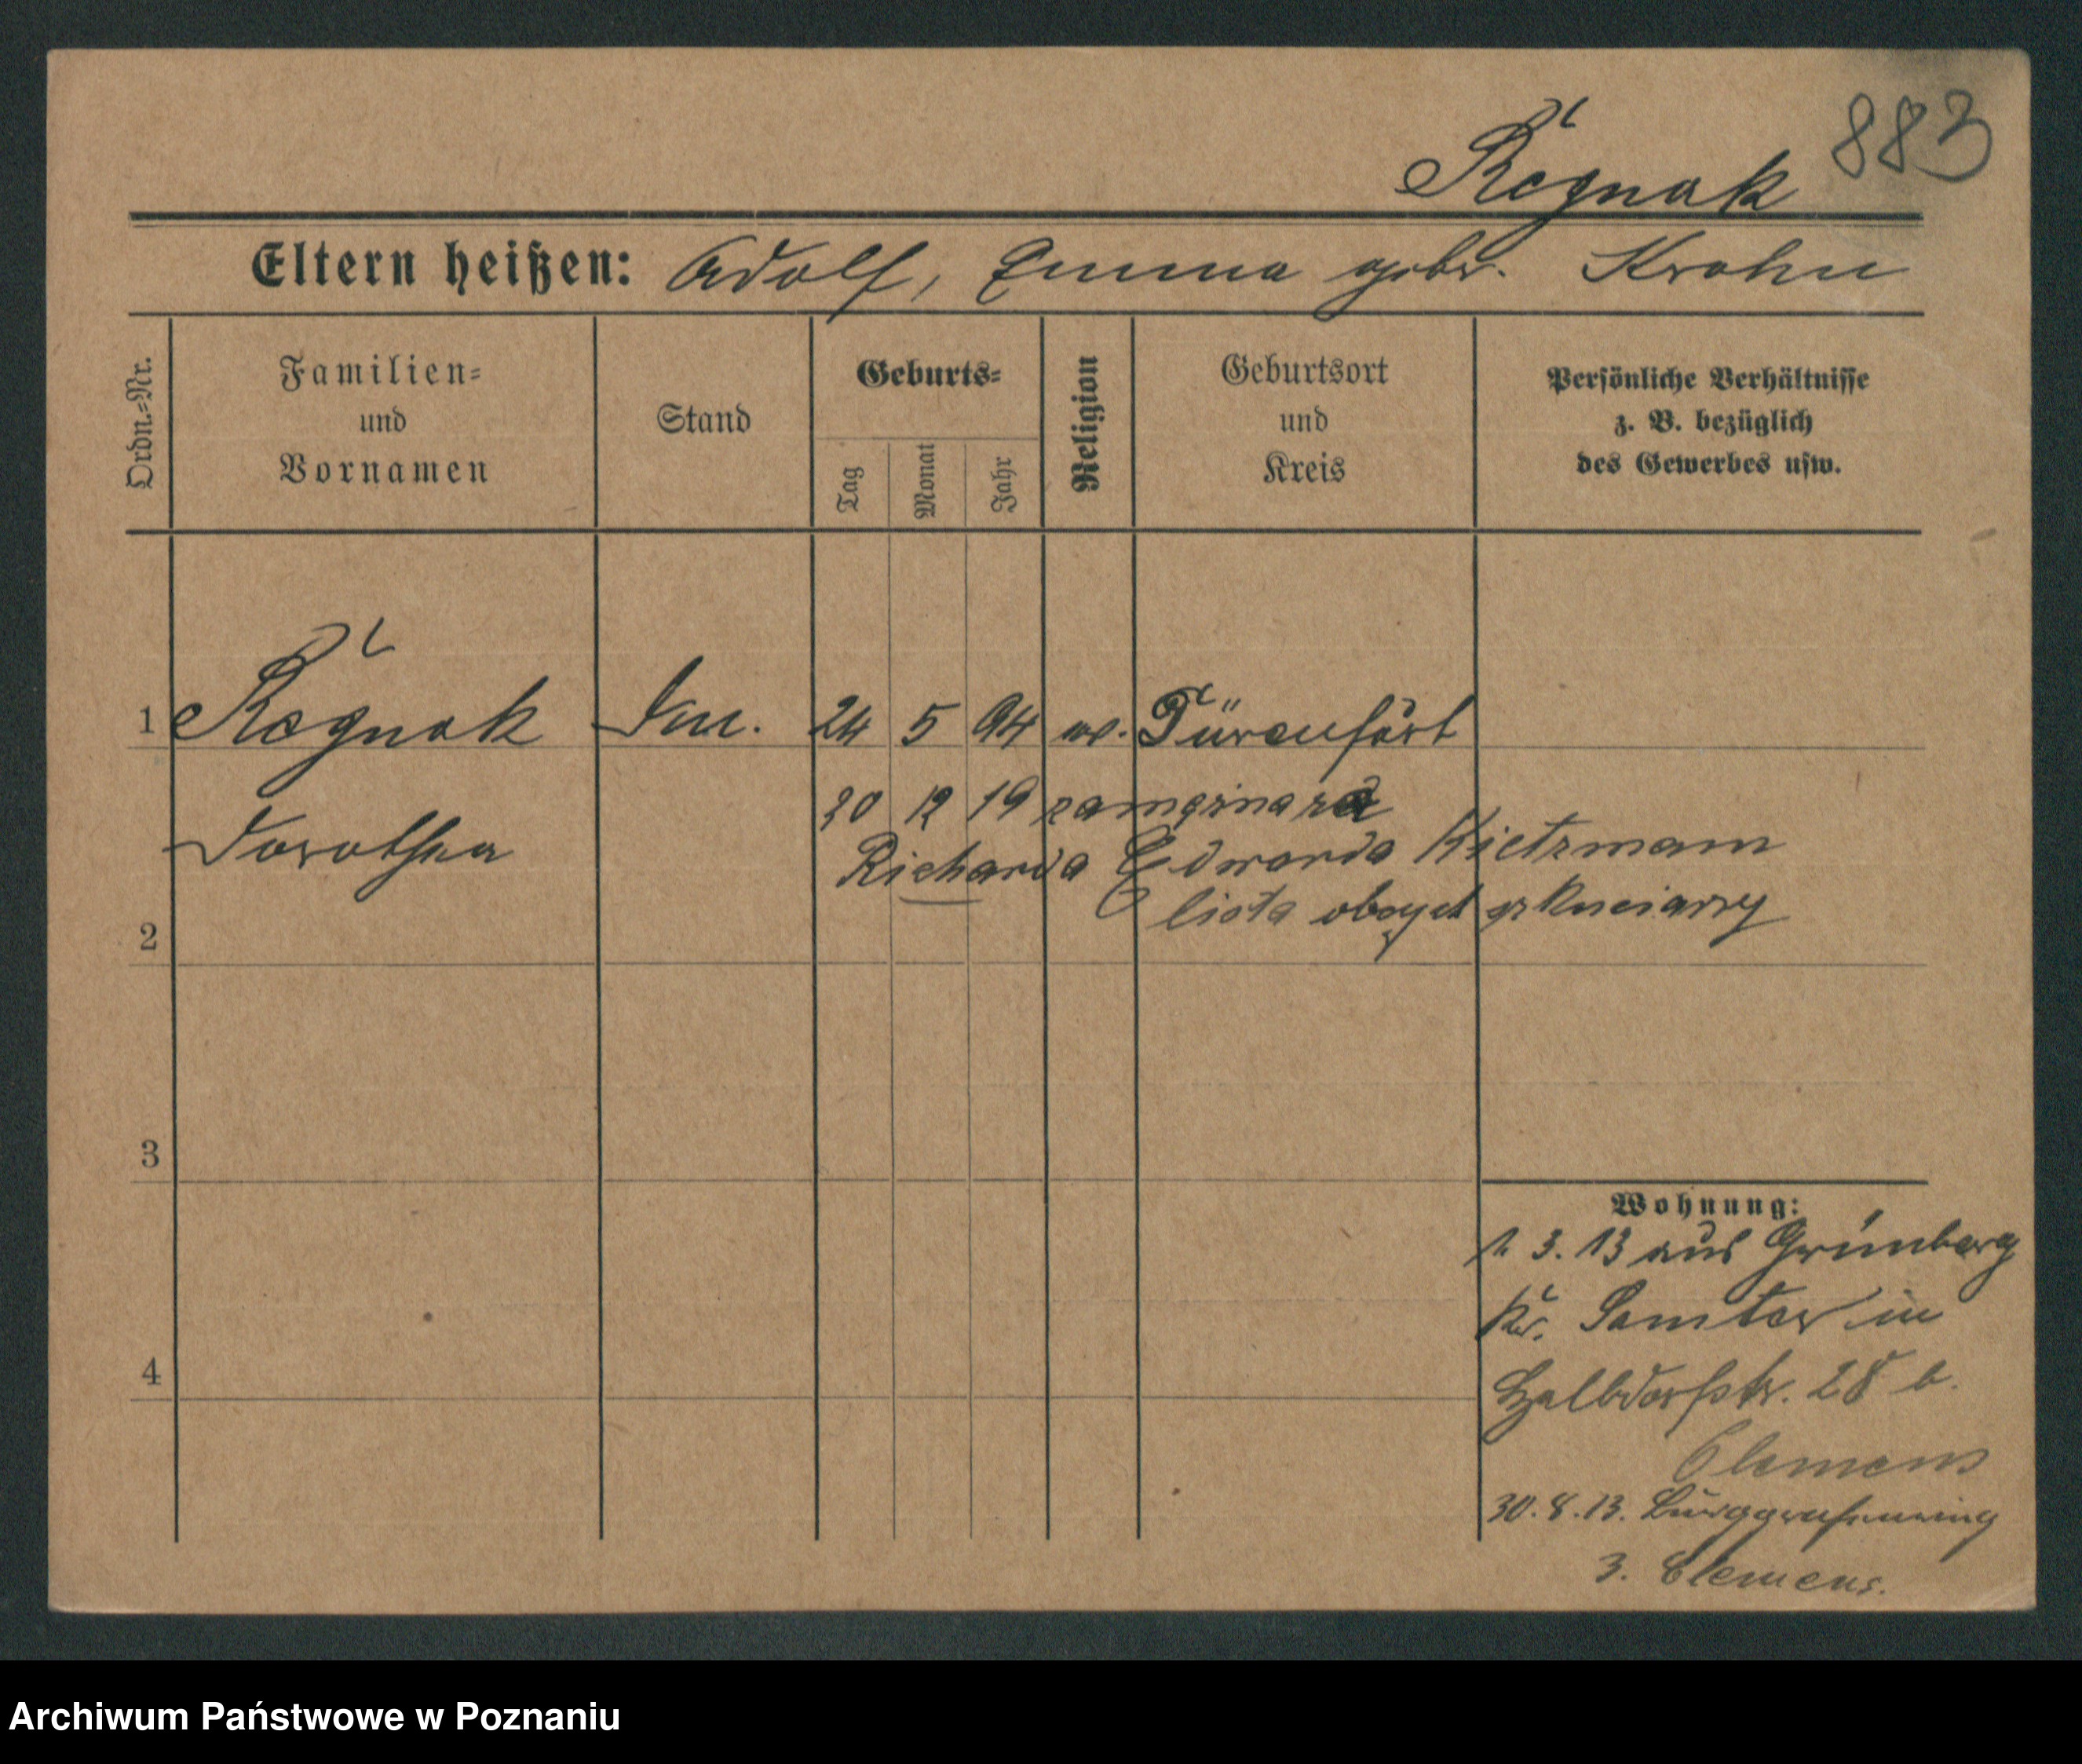 883
Regnak
Eltern heißen: Adolf, Emma gebr. Krohn
Ordn.=Nr.
Familien=
und
Vornamen
Stand
Geburts=
Tag
Monat
Jahr
Religion
Geburtsort
und
Kreis
Persönliche Verhältnisse
z. B. bezüglich
des Gewerbes usw.
1 Regnak 24 5 94 Fürenfört
20 12 19
Dorothea
Richarda Edwarda Kietzmam
lista
2
3
4
Wohnung:
1. 3. 13 aus Grünberg
Kr. Samter in
Halbdorfstr. 28 b.
Clemens
30. 8. 13. Burggrafenring
3. Clemens.
Archiwum Państwowe w Poznaniu